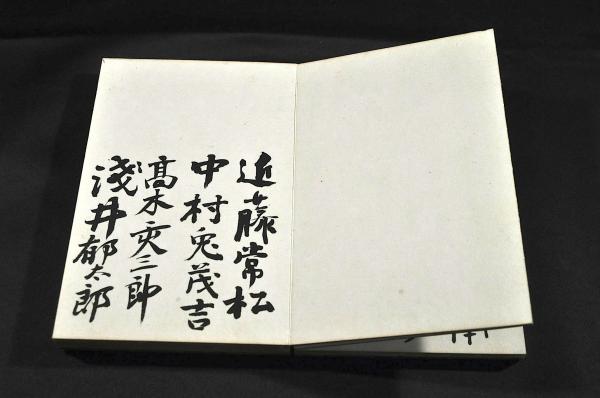 近藤常松
中村兎茂吉
髙木亥三郎
淺井郁太郎